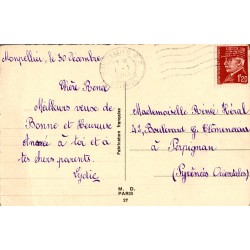 Montpellier, le 30 Décembre
Chère Renée
Meilleurs vœux de
Bonne et Heureuse
Année à toi et à
tes chers parents.
Lydie
Fabrication française
M. D.
PARIS
27
1f20
Mademoiselle Renée Héral
42, Boulevard G. Clémenceau
à Perpignan
(Pyrénées Orientales)